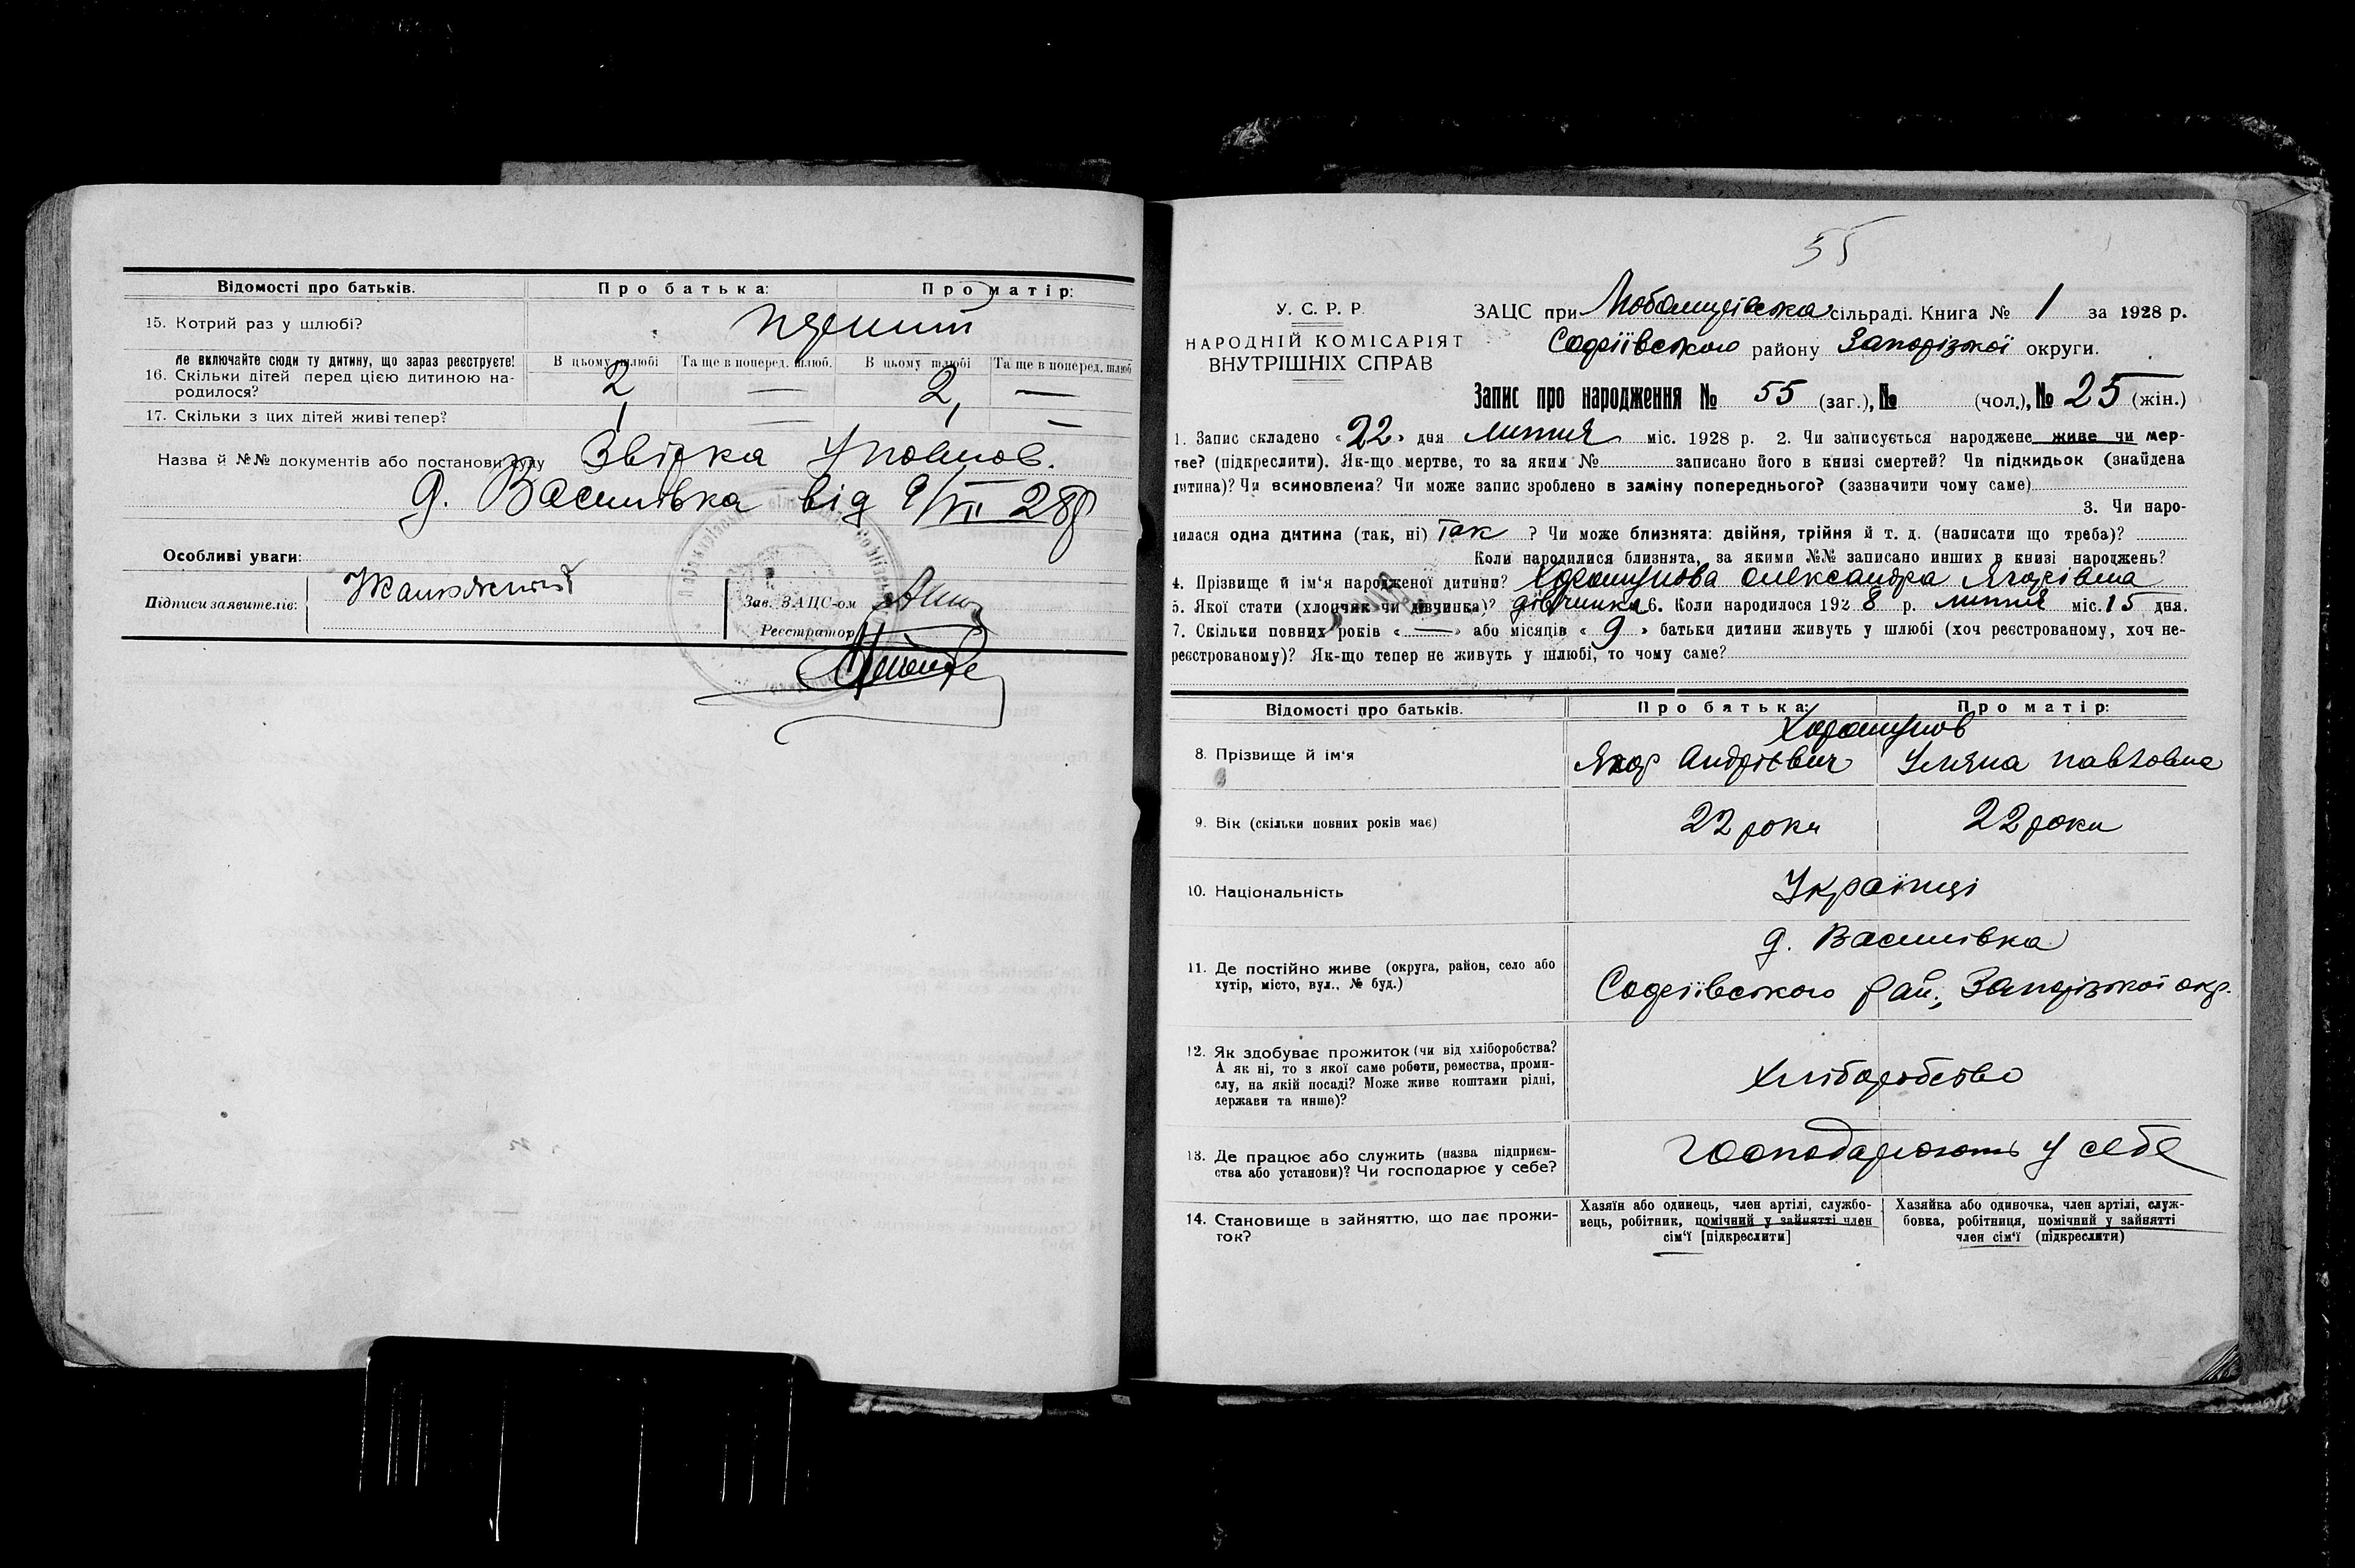 Відомості про батьків. Про батька: Про матір:
15. Котрий раз у шлюбі? перший
Не включайте сюди ту дитину, що зараз реєструєте! В цьому шлюбі Та ще в поперед. шлюб. В цьому шлюбі Та ще в поперед. шлюб
16. Скільки дітей перед цією дитиною на-
родилося? 2 — 2 —
17. Скільки з цих дітей живі тепер? 1 — 1 —
Назва й №№ документів або постанови суду Звірка Уповнов.
д. Василівка від 9/VII 28р
Особливі уваги:
Підписи заявителів:
Зав. ЗАЦС-ом
Реєстратор
55
У. С. Р. Р.
НАРОДНІЙ КОМІСАРІЯТ
ВНУТРІШНІХ СПРАВ
ЗАЦС при сільраді. Книга № 1 за 1928 р.
Софіївського району Запорізької округи.
Запис про народження № 55 (заг.), № (чол.), № 25 (жін.)
1. Запис складено «22» дня липня міс. 1928 р. 2. Чи записується народжене живе чи мер-
тве? (підкреслити). Як-що мертве, то за яким № записано його в книзі смертей? Чи підкидьок (знайдена
дитина)? Чи всиновлена? Чи може запис зроблено в заміну попереднього? (зазначити чому саме)
3. Чи наро-
дилася одна дитина (так, ні) Так ? Чи може близнята: двійня, трійня й т. д. (написати що треба)?
Коли народилися близнята, за якими №№ записано инших в книзі народжень?
4. Прізвище й ім'я народженої дитини? Хорошунова Олександра Ягорівна
5. Якої стати (хлопчяк чи дівчинка)? дівчинка 6. Коли народилося 1928 р. липня міс. 15 дня.
7. Скільки повних років «—» або місяців «9» батьки дитини живуть у шлюбі (хоч реєстрованому, хоч не-
реєстрованому)? Як-що тепер не живуть у шлюбі, то чому саме?
Відомості про батьків. Про батька: Про матір:
Хорошунов
8. Прізвище й ім'я Ягор Андрієвич Уляна Павловна
9. Вік (скільки повних років має) 22 роки 22 роки
10. Національність Українці
д. Василівка
11. Де постійно живе (округа, район, село або
хутір, місто, вул., № буд.) Софіївського рай., Запорізької окр.
12. Як здобуває прожиток (чи від хліборобства?
А як ні, то з якої саме роботи, ремества, проми-
слу, на якій посаді? Може живе коштами рідні,
держави та инше)? Хліборобство
13. Де працює або служить (назва підприєм-
ства або установи)? Чи господарює у себе? господарюють у себе
14. Становище в зайняттю, що дає прожи-
ток?
Хазяїн або одинець, член артілі, службо-
вець, робітник, помічний у зайнятті член
сім'ї [підкреслити]
Хазяйка або одиночка, член артілі, служ-
бовка, робітниця, помічний у зайнятті
член сім'ї (підкреслити)